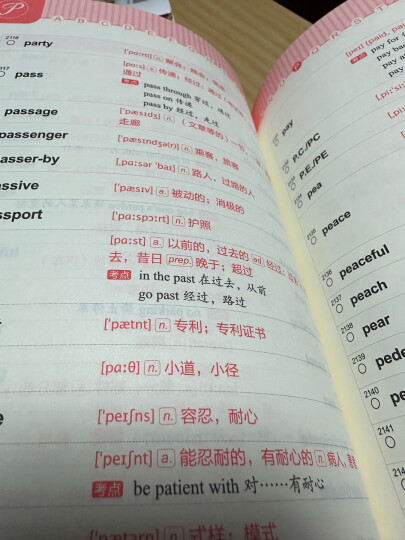 P
A B C D E F
2116
party
['pɑːti] n.
2117
pass
[pɑːs] v. 传递；经过；通过
通过
考点 pass through 穿过，通过
pass on 传递
pass by 经过，走过
passage
['pæsɪdʒ] n. （文章等的）一
走廊
passenger
['pæsɪndʒə(r)] n. 乘客，旅客
asser-by
[pɑːsər 'baɪ] n. 路人，过路的人
assive
['pæsɪv] a. 被动的；消极的
ssport
['pɑːspɔːrt] n. 护照
[pɑːst] a. 以前的，过去的 ad. 经过
去，昔日 prep. 晚于；超过
考点 in the past 在过去，从前
go past 经过，路过
['pætnt] n. 专利；专利证书
[pɑːθ] n. 小道，小径
e
['peɪʃns] n. 容忍，耐心
['peɪʃnt] a. 能忍耐的，有耐心的 n. 病人
考点 be patient with 对……有耐心
n. 式样；模式
O P Q R S T
[peɪ] (paid, pai
pay for
pay ba
pay at
pay
P.C./PC
P.E./PE
pea
peace
peaceful
2136
peach
2137
pear
2138
pede
2139
2140
pe
2141